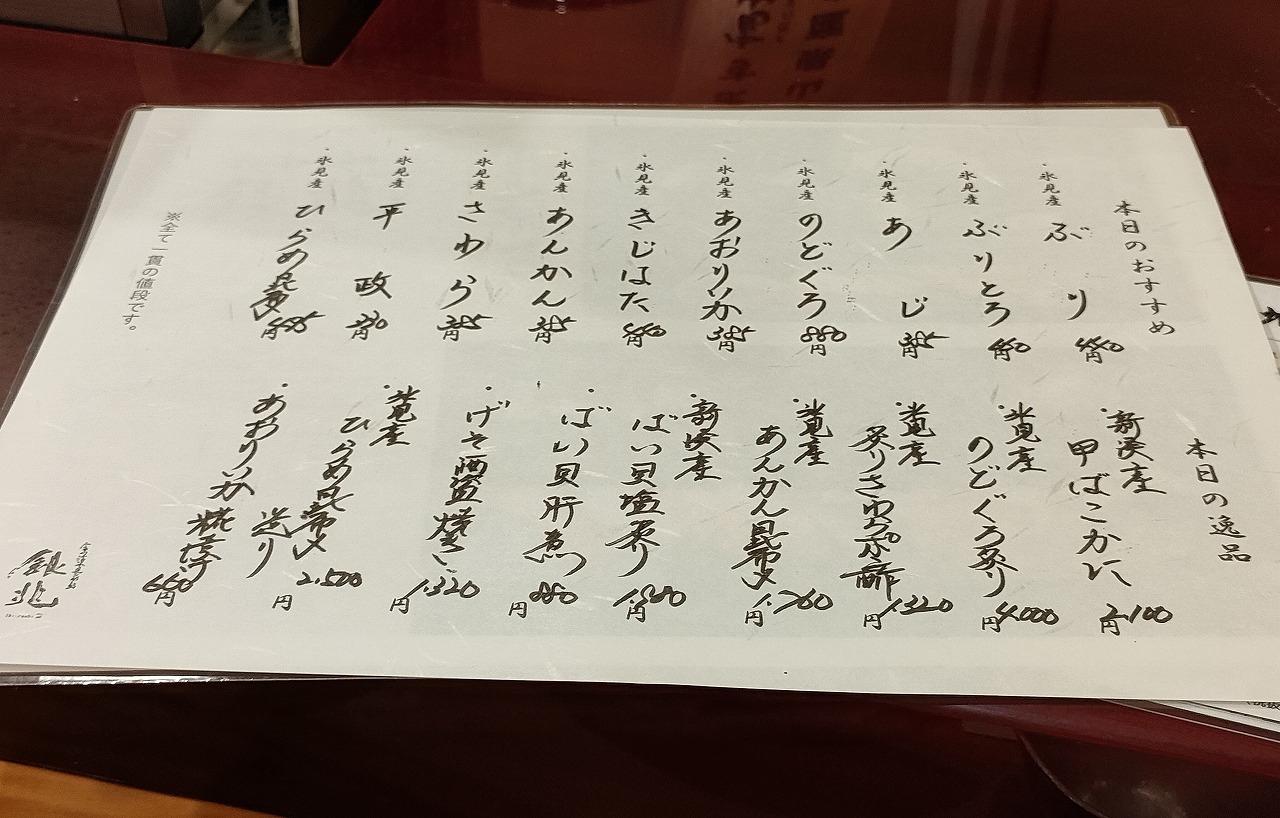 本日のおすすめ
・氷見産 ぶり 440円
・氷見産 ぶりとろ 円
・氷見産 あじ 385円
・氷見産 のどぐろ 880円
・氷見産 あおりいか 385円
・氷見産 きじはた 440円
・氷見産 あんかん 385円
・氷見産 さわら 385円
・氷見産 平政 330円
・氷見産 ひらめ昆布〆 円
※全て一貫の値段です。
本日の逸品
・新湊産
甲ばこかに 2,100円
・氷見産
のどぐろ炙り 4,000円
・氷見産
炙りさわらポン酢 1,320円
・氷見産
あんかん昆布〆 1,760円
・新湊産
ばい貝塩炙り 円
・ばい貝肝煮 880円
・げそ酒盗焼き 1,320円
・氷見産
ひらめ昆布〆
造り 2,500円
・あおりいか
糀塩辛 660円